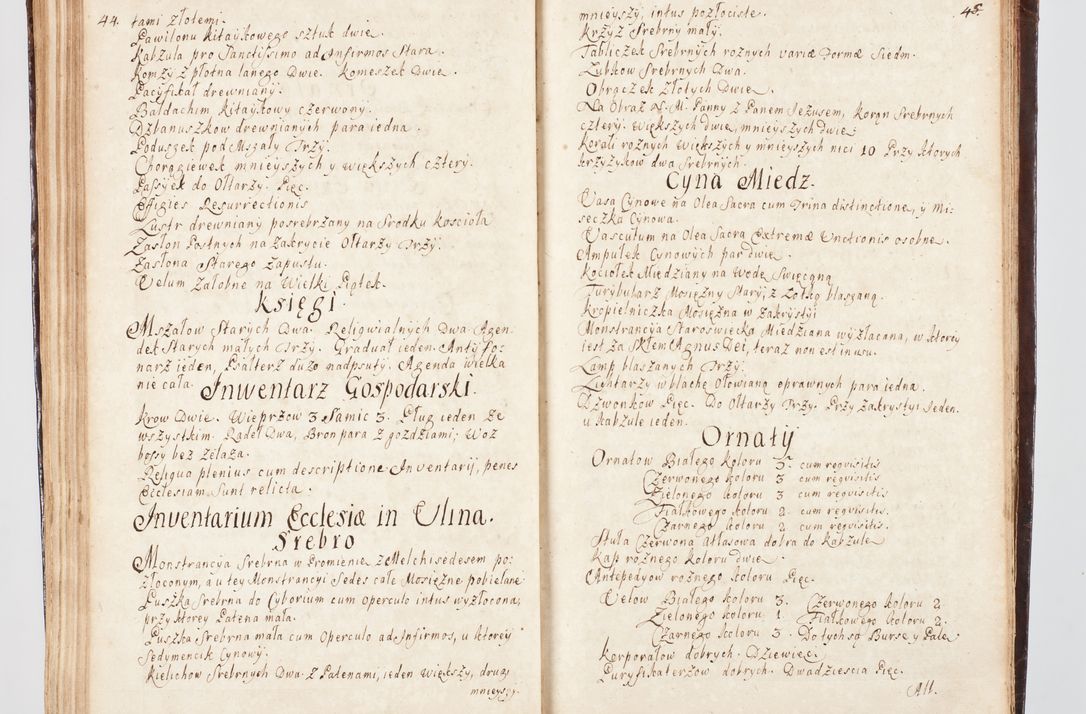 44.
tami złotemi.
Pawilonu kitaykowego sztuk dwie.
Kabzula pro Sanctissimo ad Infirmos Stara.
Komży z płotna lanego Dwie. Komeszek Dwie.
Pacyfikał drewniany.
Baldachim kitaykowy czerwony.
Dzbanuszkow drewnianych para iedna.
Poduszek pod Mszały Trzy.
Chorągiewek mnieyszych y większych cztery.
Passyek do Ołtarzy. Pięc.
Effigies Resurrectionis
Lustr drewniany posrebrzany na Srodku kosciola
Zasłon Postnych na zakrycie Ołtarzy Trzy.
Zasłona Starego Zapustu.
Velum Załobne na Wielki Piątek.
Księgi.
Mszałow Starych Dwa. Religwialnych Dwa. Agen-
dek Starych małych Trzy. Graduał ieden. Antyfo-
narz ieden, Psałterz duzo nadpsuty. Agenda wielka
nie cała.
Inwentarz Gospodarski.
Krow Dwie. Wieprzow 3 Samic 3. Pług ieden Ze
wszystkim. Radeł Dwa, Bron para z gozdziami; Woz
bossy bez zelaza.
Reliqua plenius cum descriptione Inventarij, penes
Ecclesiam Sunt relicta.
Inventarium Ecclesiæ in Ulina.
Srebro
Monstrancya Srebrna w Promienie z Melchisedesem po-
złoconym, á u tey Monstrancyi Sedes całe Mosiężne pobielane
Puszka Srebrna do Cyborium cum Operculo intus wyzłocona,
przy ktorey Patena mała.
Puszka Srebrna mała cum Operculo ad Infirmos, u ktorey
Sedymencik Cynowy.
Kielichow Srebrnych Dwa. Z Patenami, ieden większy, drugi
mnieyszy.
45.
mnieyszy, intus pozłociste.
Krzyz Srebrny mały.
Tabliczek Srebrnych roznych variæ Formæ Siedm.
Lubkow Srebrnych Dwa.
Obrączek Złotych Dwie.
Na Obraz N. M. Panny z Panem Jezusem, koron Srebrnych
cztery. większych dwie, mnieyszych dwie.
Korali roznych większych y mnieyszych nici 10 Przy ktorych
krzyzykow dwa Srebrnych.
Cyna Miedz.
Vasa Cynowe na Olea Sacra cum Trina distinctione, y Mi-
seczka Cynowa.
Vasculum na Olea Sacra Extremæ Unctionis osobne.
Ampułek Cynowych par dwie.
Kociołek Miedziany na Wodę Swięconą
Turybularz Mosiężny Stary, z Lotką blaszaną.
Kropielniczka Mosięzna w Zakrystyi
Monstrancyá Staroswiecka Miedziana wyzłacana, w ktorey
iest za Skłem Agnus Dei, teraz non est in usu.
Lamp blaszanych Trzy.
Lichtarzy w blachę ołowianą oprawnych para iedna.
Dzwonkow Pięc. Do Ołtarzy Trzy. Przy Zakrystyi Ieden.
u Kabzule ieden.
Ornaty
Ornatow Białego koloru 5. cum reqvisitis
Czerwonego koloru 3 cum reqvisitis
Zielonego koloru 3 cum reqvisitis
Fiałkowego koloru 2. cum reqvisitis.
Czarnego koloru 2 cum reqvisitis.
Stuła Czerwona Atłasowa dobra do Kabzule
Kap roznego koloru dwie.
Antepedyow roznego koloru Pięc.
Velow Białego koloru 3. Czerwonego koloru 2
Zielonego koloru 1 Fiałkowego koloru 2.
Czarnego koloru 3. Do tych są Burse y Pale.
Korporałow dobrych. Dziewięc.
Puryfikaterzow dobrych. Dwadziescia Pięc.
All.